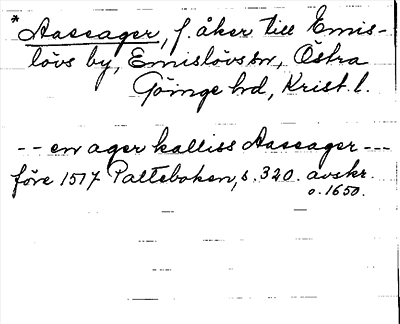 * Aasager, f. åker till Emis-
lövs by, Emislövs sn, Östra
Göinge hd, Krist. l.
-- en ager kalliss Aasager ---
före 1517 Palteboken, s. 320. avskr.
o. 1650.